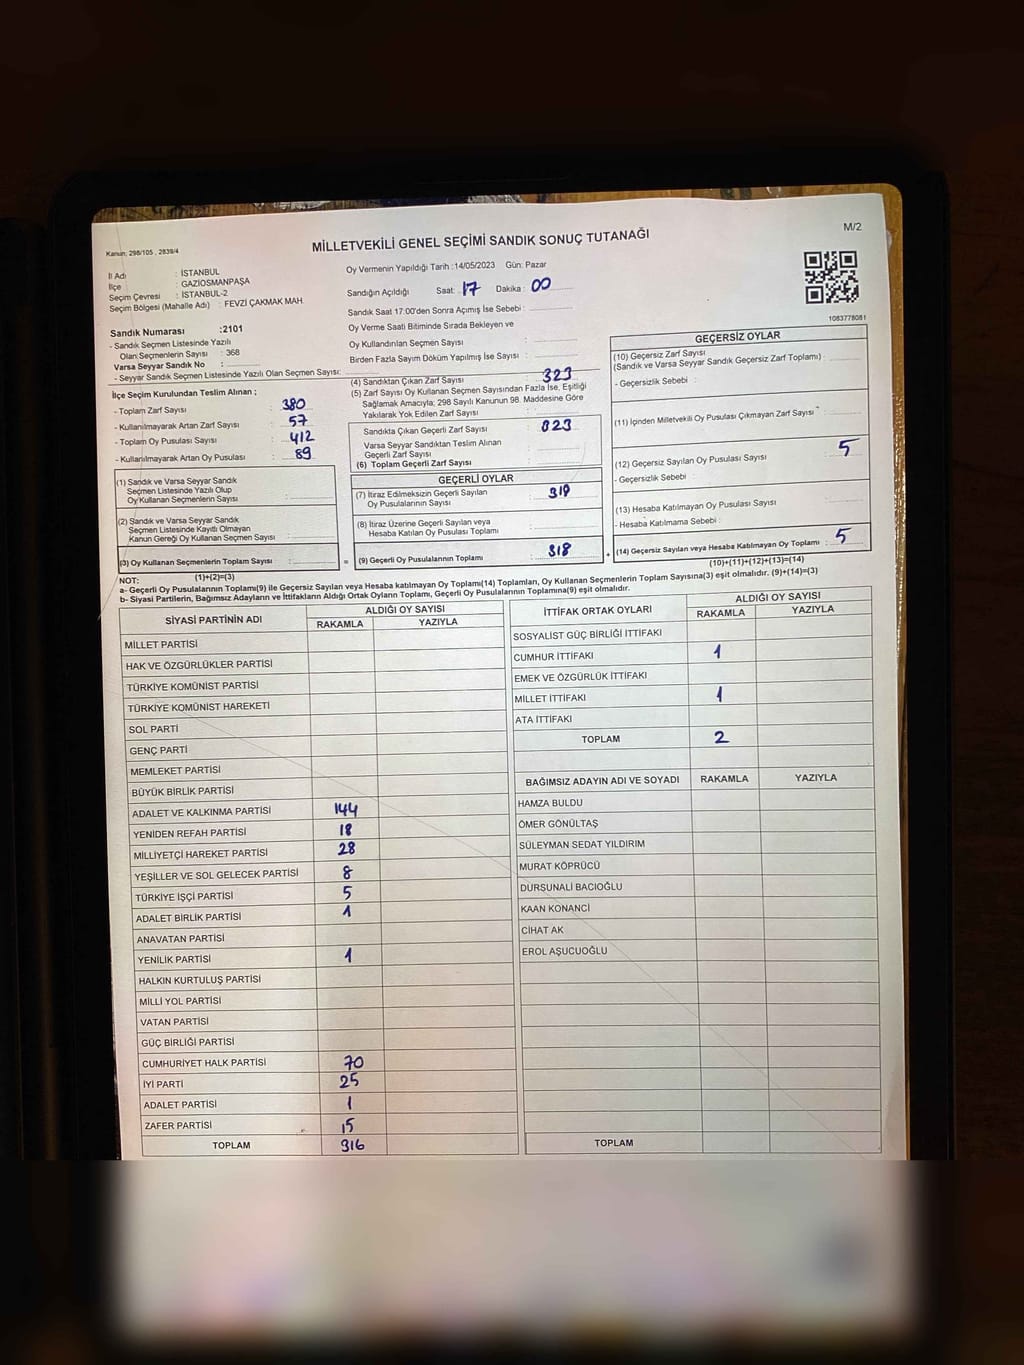 Kanun: 298/105 , 2839/4
M/2
MİLLETVEKİLİ GENEL SEÇİMİ SANDIK SONUÇ TUTANAĞI
İl Adı : İSTANBUL
İlçe : GAZİOSMANPAŞA
Seçim Çevresi : İSTANBUL-2
Seçim Bölgesi (Mahalle Adı) : FEVZİ ÇAKMAK MAH.
Sandık Numarası :2101
- Sandık Seçmen Listesinde Yazılı
Olan Seçmenlerin Sayısı : 368
Varsa Seyyar Sandık No :
- Seyyar Sandık Seçmen Listesinde Yazılı Olan Seçmen Sayısı:
Oy Vermenin Yapıldığı Tarih :14/05/2023 Gün: Pazar
Sandığın Açıldığı Saat: 17 Dakika : 00
Sandık Saat 17:00'den Sonra Açımış İse Sebebi :
Oy Verme Saati Bitiminde Sırada Bekleyen ve
Oy Kullandırılan Seçmen Sayısı :
Birden Fazla Sayım Döküm Yapılmış İse Sayısı :
1083778081
İlçe Seçim Kurulundan Teslim Alınan ;
- Toplam Zarf Sayısı : 380
- Kullanılmayarak Artan Zarf Sayısı : 57
- Toplam Oy Pusulası Sayısı : 412
- Kullanılmayarak Artan Oy Pusulası : 89
(1) Sandık ve Varsa Seyyar Sandık
Seçmen Listesinde Yazılı Olup
Oy Kullanan Seçmenlerin Sayısı :
(2) Sandık ve Varsa Seyyar Sandık
Seçmen Listesinde Kayıtlı Olmayan
Kanun Gereği Oy Kullanan Seçmen Sayısı :
(3) Oy Kullanan Seçmenlerin Toplam Sayısı :
(1)+(2)=(3)
(4) Sandıktan Çıkan Zarf Sayısı : 323
(5) Zarf Sayısı Oy Kullanan Seçmen Sayısından Fazla İse, Eşitliği
Sağlamak Amacıyla; 298 Sayılı Kanunun 98. Maddesine Göre
Yakılarak Yok Edilen Zarf Sayısı :
Sandıkta Çıkan Geçerli Zarf Sayısı : 323
Varsa Seyyar Sandıktan Teslim Alınan
Geçerli Zarf Sayısı :
(6) Toplam Geçerli Zarf Sayısı :
GEÇERLİ OYLAR
(7) İtiraz Edilmeksizin Geçerli Sayılan
Oy Pusulalarının Sayısı :
(8) İtiraz Üzerine Geçerli Sayılan veya
Hesaba Katılan Oy Pusulası Toplamı :
= (9) Geçerli Oy Pusulalarının Toplamı : 318
GEÇERSİZ OYLAR
(10) Geçersiz Zarf Sayısı
(Sandık ve Varsa Seyyar Sandık Geçersiz Zarf Toplamı) :
- Geçersizlik Sebebi :
(11) İçinden Milletvekili Oy Pusulası Çıkmayan Zarf Sayısı :
(12) Geçersiz Sayılan Oy Pusulası Sayısı : 5
- Geçersizlik Sebebi :
(13) Hesaba Katılmayan Oy Pusulası Sayısı :
- Hesaba Katılmama Sebebi :
+ (14) Geçersiz Sayılan veya Hesaba Katılmayan Oy Toplamı : 5
(10)+(11)+(12)+(13)=(14)
NOT:
a- Geçerli Oy Pusulalarının Toplamı(9) ile Geçersiz Sayılan veya Hesaba katılmayan Oy Toplamı(14) Toplamları, Oy Kullanan Seçmenlerin Toplam Sayısına(3) eşit olmalıdır. (9)+(14)=(3)
b- Siyasi Partilerin, Bağımsız Adayların ve İttifakların Aldığı Ortak Oyların Toplamı, Geçerli Oy Pusulalarının Toplamına(9) eşit olmalıdır.
SİYASİ PARTİNİN ADI ALDIĞI OY SAYISI
RAKAMLA YAZIYLA
MİLLET PARTİSİ
HAK VE ÖZGÜRLÜKLER PARTİSİ
TÜRKİYE KOMÜNİST PARTİSİ
TÜRKİYE KOMÜNİST HAREKETİ
SOL PARTİ
GENÇ PARTİ
MEMLEKET PARTİSİ
BÜYÜK BİRLİK PARTİSİ
ADALET VE KALKINMA PARTİSİ 144
YENİDEN REFAH PARTİSİ 18
MİLLİYETÇİ HAREKET PARTİSİ 28
YEŞİLLER VE SOL GELECEK PARTİSİ 8
TÜRKİYE İŞÇİ PARTİSİ 5
ADALET BİRLİK PARTİSİ 1
ANAVATAN PARTİSİ
YENİLİK PARTİSİ 1
HALKIN KURTULUŞ PARTİSİ
MİLLİ YOL PARTİSİ
VATAN PARTİSİ
GÜÇ BİRLİĞİ PARTİSİ
CUMHURİYET HALK PARTİSİ 70
İYİ PARTİ 25
ADALET PARTİSİ 1
ZAFER PARTİSİ 15
TOPLAM 316
İTTİFAK ORTAK OYLARI ALDIĞI OY SAYISI
RAKAMLA YAZIYLA
SOSYALİST GÜÇ BİRLİĞİ İTTİFAKI
CUMHUR İTTİFAKI 1
EMEK VE ÖZGÜRLÜK İTTİFAKI
MİLLET İTTİFAKI 1
ATA İTTİFAKI
TOPLAM 2
BAĞIMSIZ ADAYIN ADI VE SOYADI RAKAMLA YAZIYLA
HAMZA BULDU
ÖMER GÖNÜLTAŞ
SÜLEYMAN SEDAT YILDIRIM
MURAT KÖPRÜCÜ
DURSUNALİ BACIOĞLU
KAAN KONANCİ
CİHAT AK
EROL AŞUCUOĞLU
TOPLAM